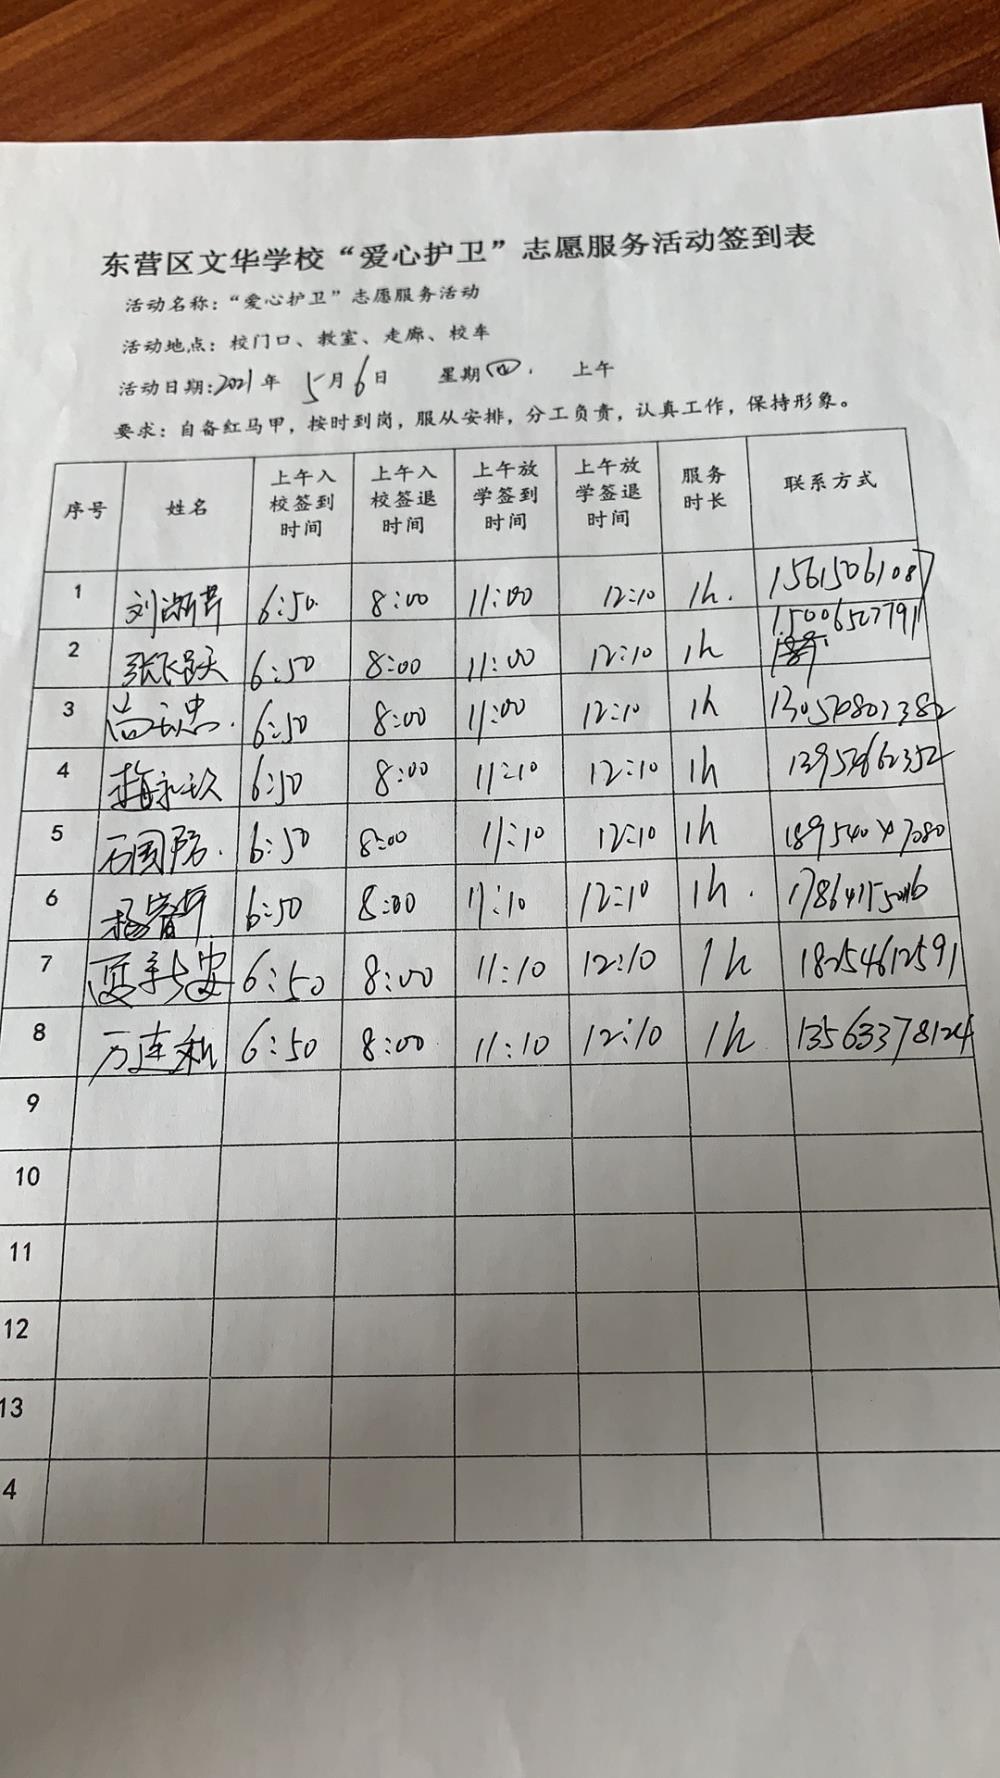 东营区文华学校“爱心护卫”志愿服务活动签到表
活动名称：“爱心护卫”志愿服务活动
活动地点：校门口、教室、走廊、校车
活动日期:2021年 5月6日 星期四. 上午
要求：自备红马甲，按时到岗，服从安排，分工负责，认真工作，保持形象。
序号 姓名 上午入校签到时间 上午入校签退时间 上午放学签到时间 上午放学签退时间 服务时长 联系方式
1 刘淑芹 6:50 8:00 11:00 12:10 1h. 15615061087
2 张飞跃 6:50 8:00 11:00 12:10 1h 15006527791
3 6:50 8:00 11:00 12:10 1h
4 6:50 8:00 11:10 12:10 1h
5 6:50 8:00 11:10 12:10 1h
6 6:50 8:00 11:10 12:10 1h.
7 6:50 8:00 11:10 12:10 1h 18254612591
8 万连利 6:50 8:00 11:10 12:10 1h 13563378124
9
10
11
12
13
4